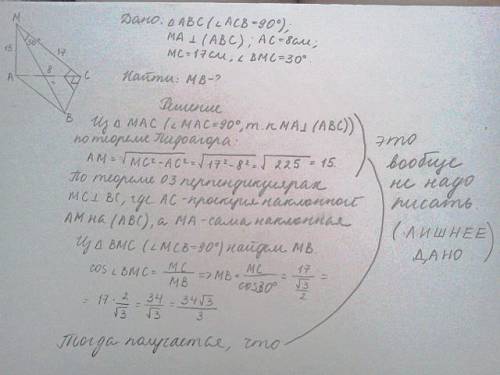 Дано: △ABC (∠ACB=90°);
MA⊥(ABC); AC=8см,
MC=17см, ∠BMC=30°.
Найти: MB-?
M
30°
15
17
A
8
C
B
Решение
Из △MAC (∠MAC=90°, т.к MA⊥(ABC))
по теореме Пифагора:
AM=√MC²-AC²=√17²-8²=√225=15.
По теореме О3 перпендикулярах
MC⊥BC, где AC-проекция наклонной
AM на (ABC), а MA-сама наклонная
Из △BMC (∠MCB=90°) найдем MB.
cos∠BMC=MC/MB=>MB=MC/cos30°=17/(√3/2)=
=17·2/√3=34/√3=34√3/3
Тогда получается, что
это
вообще
не надо
писать
(ЛИШНЕЕ)
ДАНО